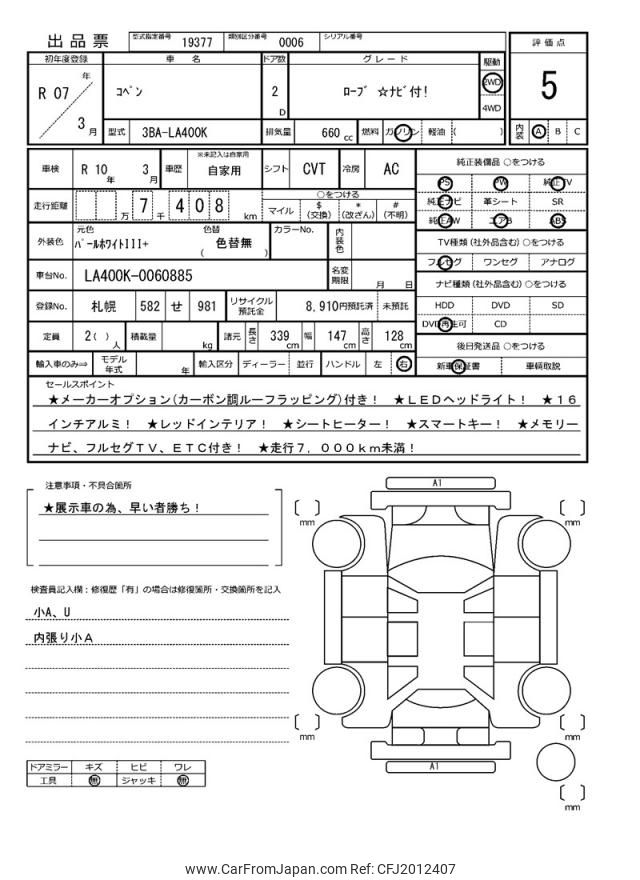 出品票
型式指定番号 19377 類別区分番号 0006 シリアル番号
評価点
5
内装 A B C
初年度登録 車名 ドア数 グレード 駆動
R 07 年 3 月
コペン 2 D ローブ ☆ナビ付! 2WD 4WD
型式 3BA-LA400K 排気量 660 cc 燃料 ガソリン 軽油 ( )
車検 R 10 年 3 月 車歴 ※未記入は自家用 自家用 シフト CVT 冷房 AC
走行距離 万 7 千 4 0 8 km
○をつける
マイル $(交換) *(改ざん) #(不明)
外装色 元色 パールホワイトIII+ 色替 ( 色替無 ) カラーNo. 内装色
車台No. LA400K-0060885 名変期限 月 日
登録No. 札幌 582 せ 981 リサイクル預託金 8,910円預託済 未預託
定員 2( ) 人 積載量 kg 諸元 長さ 339 cm 幅 147 cm 高さ 128 cm
輸入車のみ⇒ モデル年式 年 輸入区分 ディーラー 並行 ハンドル 左 右
純正装備品 ○をつける
PS PW 純正TV
純正ナビ 革シート SR
純正AW エアB ABS
TV種類(社外品含む)○をつける
フルセグ ワンセグ アナログ
ナビ種類(社外品含む)○をつける
HDD DVD SD
DVD再生可 CD
後日発送品 ○をつける
新車保証書 車輌取説
セールスポイント
★メーカーオプション(カーボン調ルーフラッピング)付き! ★LEDヘッドライト! ★16
インチアルミ! ★レッドインテリア! ★シートヒーター! ★スマートキー! ★メモリー
ナビ、フルセグTV、ETC付き! ★走行7,000km未満!
注意事項・不具合箇所
★展示車の為、早い者勝ち!
検査員記入欄:修復歴「有」の場合は修復箇所・交換箇所を記入
小A、U
内張り小A
ドアミラー キズ ヒビ ワレ
工具 無 ジャッキ 無
A1
mm
mm
mm
mm
A1
mm
www.CarFromJapan.com Ref: CFJ2012407